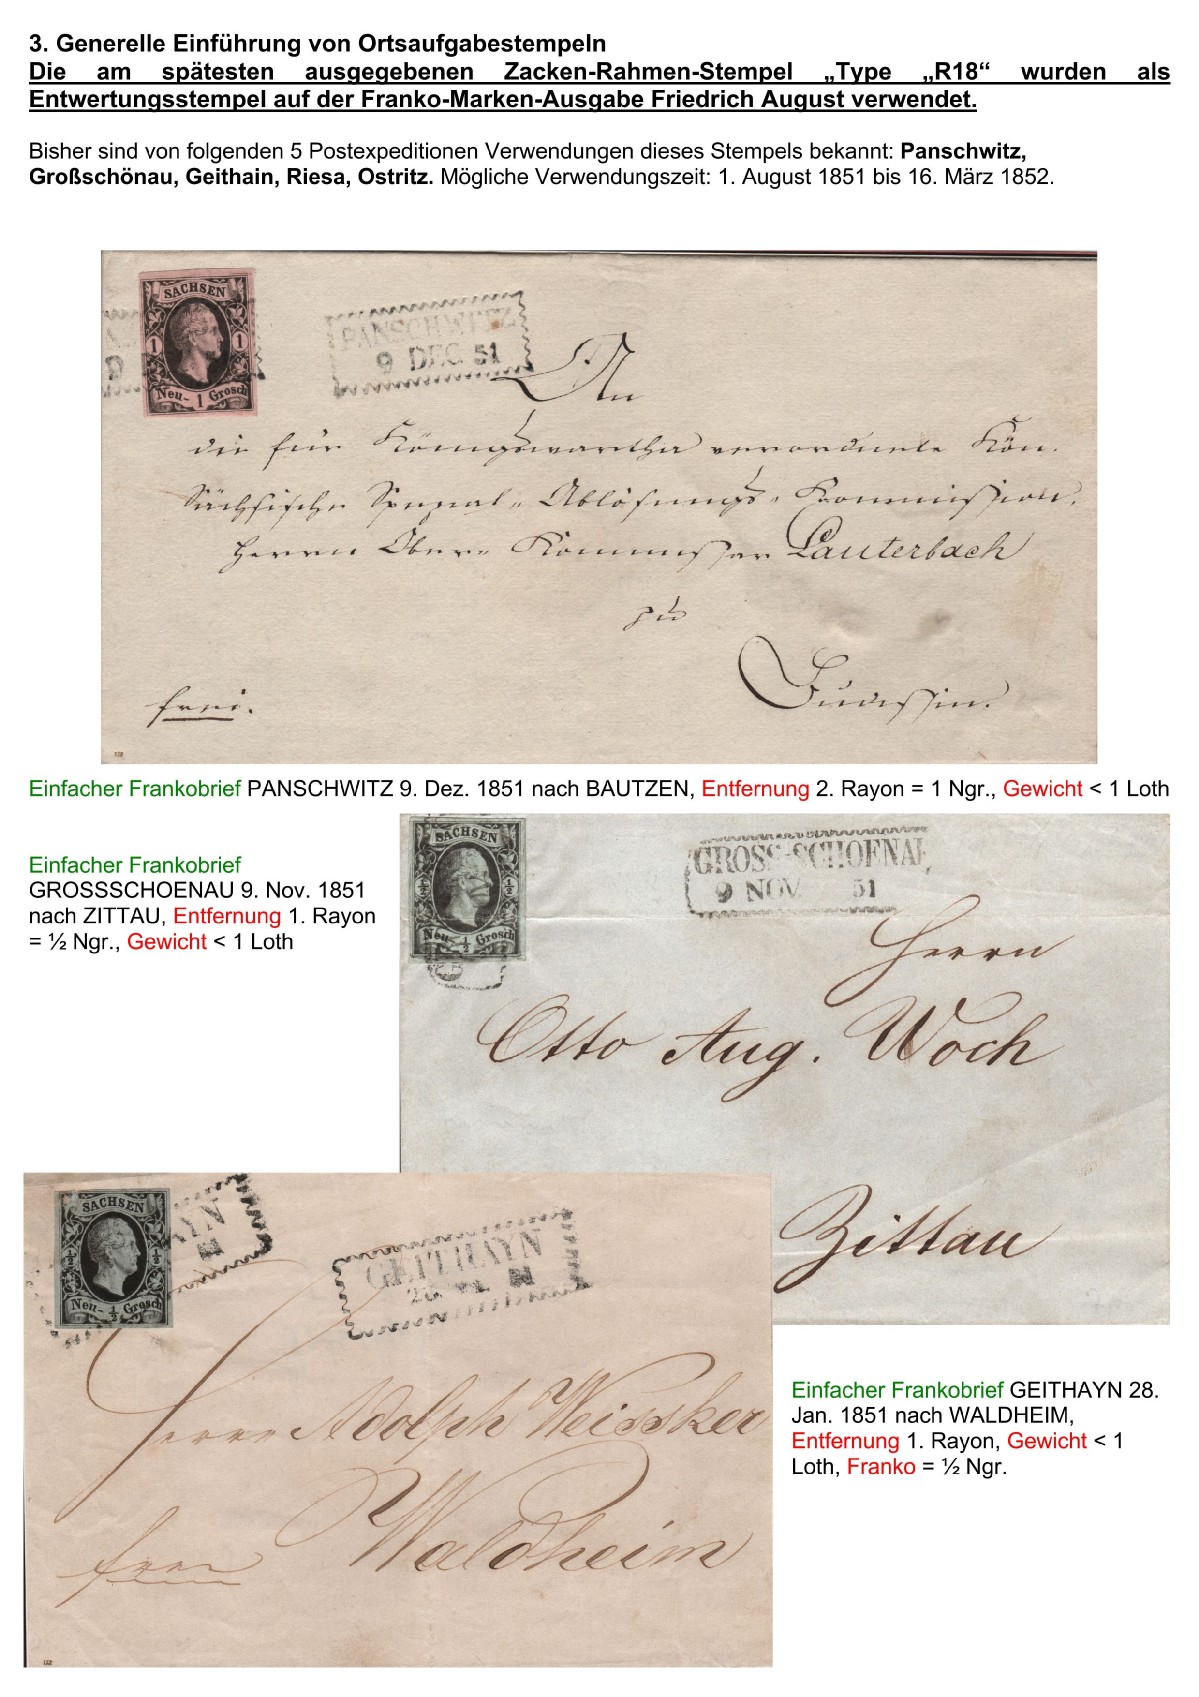 3. Generelle Einführung von Ortsaufgabestempeln
Die am spätesten ausgegebenen Zacken-Rahmen-Stempel „Type „R18“ wurden als
Entwertungsstempel auf der Franko-Marken-Ausgabe Friedrich August verwendet.
Bisher sind von folgenden 5 Postexpeditionen Verwendungen dieses Stempels bekannt: Panschwitz,
Großschönau, Geithain, Riesa, Ostritz. Mögliche Verwendungszeit: 1. August 1851 bis 16. März 1852.
SACHSEN
1 1
Neu- 1 Grosch
PANSCHWITZ
9 DEC 51
An
die für Königswartha verordnete Kön.
Sächsische Spezial-Ablösungs-Kommission,
Herrn Ober-Kommissar Lauterbach
zu
Budissin.
frei.
Einfacher Frankobrief PANSCHWITZ 9. Dez. 1851 nach BAUTZEN, Entfernung 2. Rayon = 1 Ngr., Gewicht < 1 Loth
Einfacher Frankobrief
GROSSSCHOENAU 9. Nov. 1851
nach ZITTAU, Entfernung 1. Rayon
= ½ Ngr., Gewicht < 1 Loth
SACHSEN
½ ½
Neu- ½ Grosch
GROSS-SCHOENAU
9 NOV 51
Herrn
Otto Aug. Woch
Zittau
SACHSEN
½ ½
Neu- ½ Grosch
AYN
GEITHAYN
Herrn Adolph Weissker
Waldheim
frei
Einfacher Frankobrief GEITHAYN 28.
Jan. 1851 nach WALDHEIM,
Entfernung 1. Rayon, Gewicht < 1
Loth, Franko = ½ Ngr.